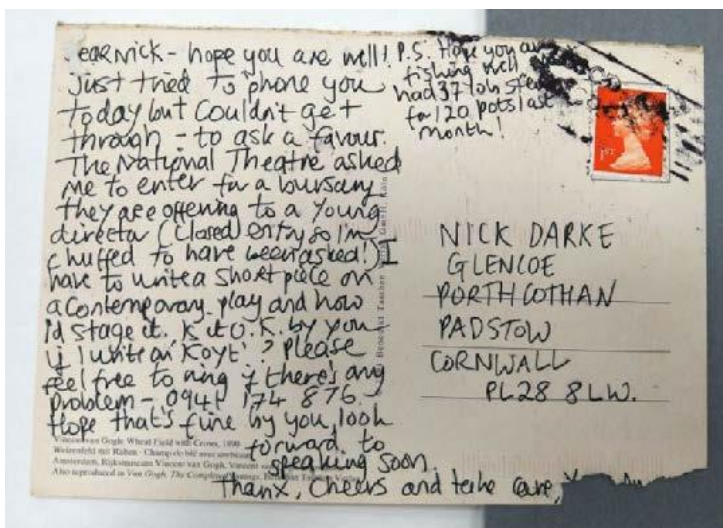 earNick - hope you are well!
just tried to phone you
today but Couldn't get
through - to ask a favour.
The National Theatre asked
me to enter for a bursary
they are offering to a young
director (closed) entry so I'm
chuffed to have been asked!) I
have to write a short piece on
a contemporary play and how
I'd stage it. Is it O.K. by you
if I write on 'Koyt'? Please
feel free to ring if there's any
problem - 0941 174 876.
Hope that's fine by you, look
forward to
speaking soon.
Thanx, Cheers and take care,
P.S. Hope you are
fishing well
had 37 lob
for 120 pots last
month!
1ST
NICK DARKE
GLENCOE
PORTHCOTHAN
PADSTOW
CORNWALL
PL28 8LW.
Benedikt Taschen
Vincent van Gogh: Wheat Field with Crows, 1890
Weizenfeld mit Raben · Champ de blé aux corbeaux
Amsterdam, Rijksmuseum Vincent van Gogh, Vincent
Also reproduced in Van Gogh. The Complete Paintings, Benedikt Taschen